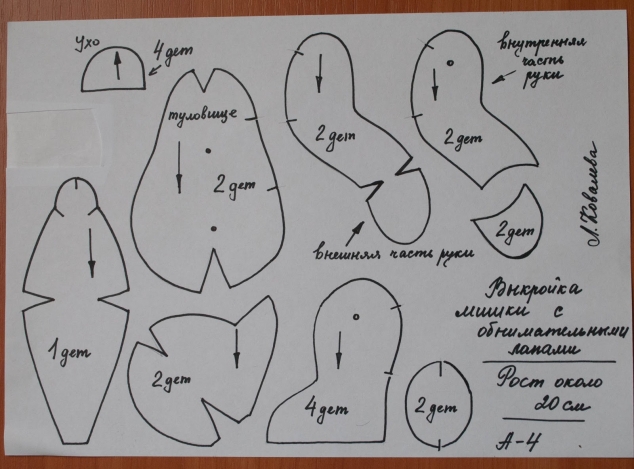 Ухо
4 дет
туловище
2 дет
2 дет
внешняя часть руки
внутренняя
часть
руки
2 дет
2 дет
Л. Ковалева
1 дет
2 дет
4 дет
2 дет
Выкройка
мишки с
обнимательными
лапами
Рост около
20 см
А-4